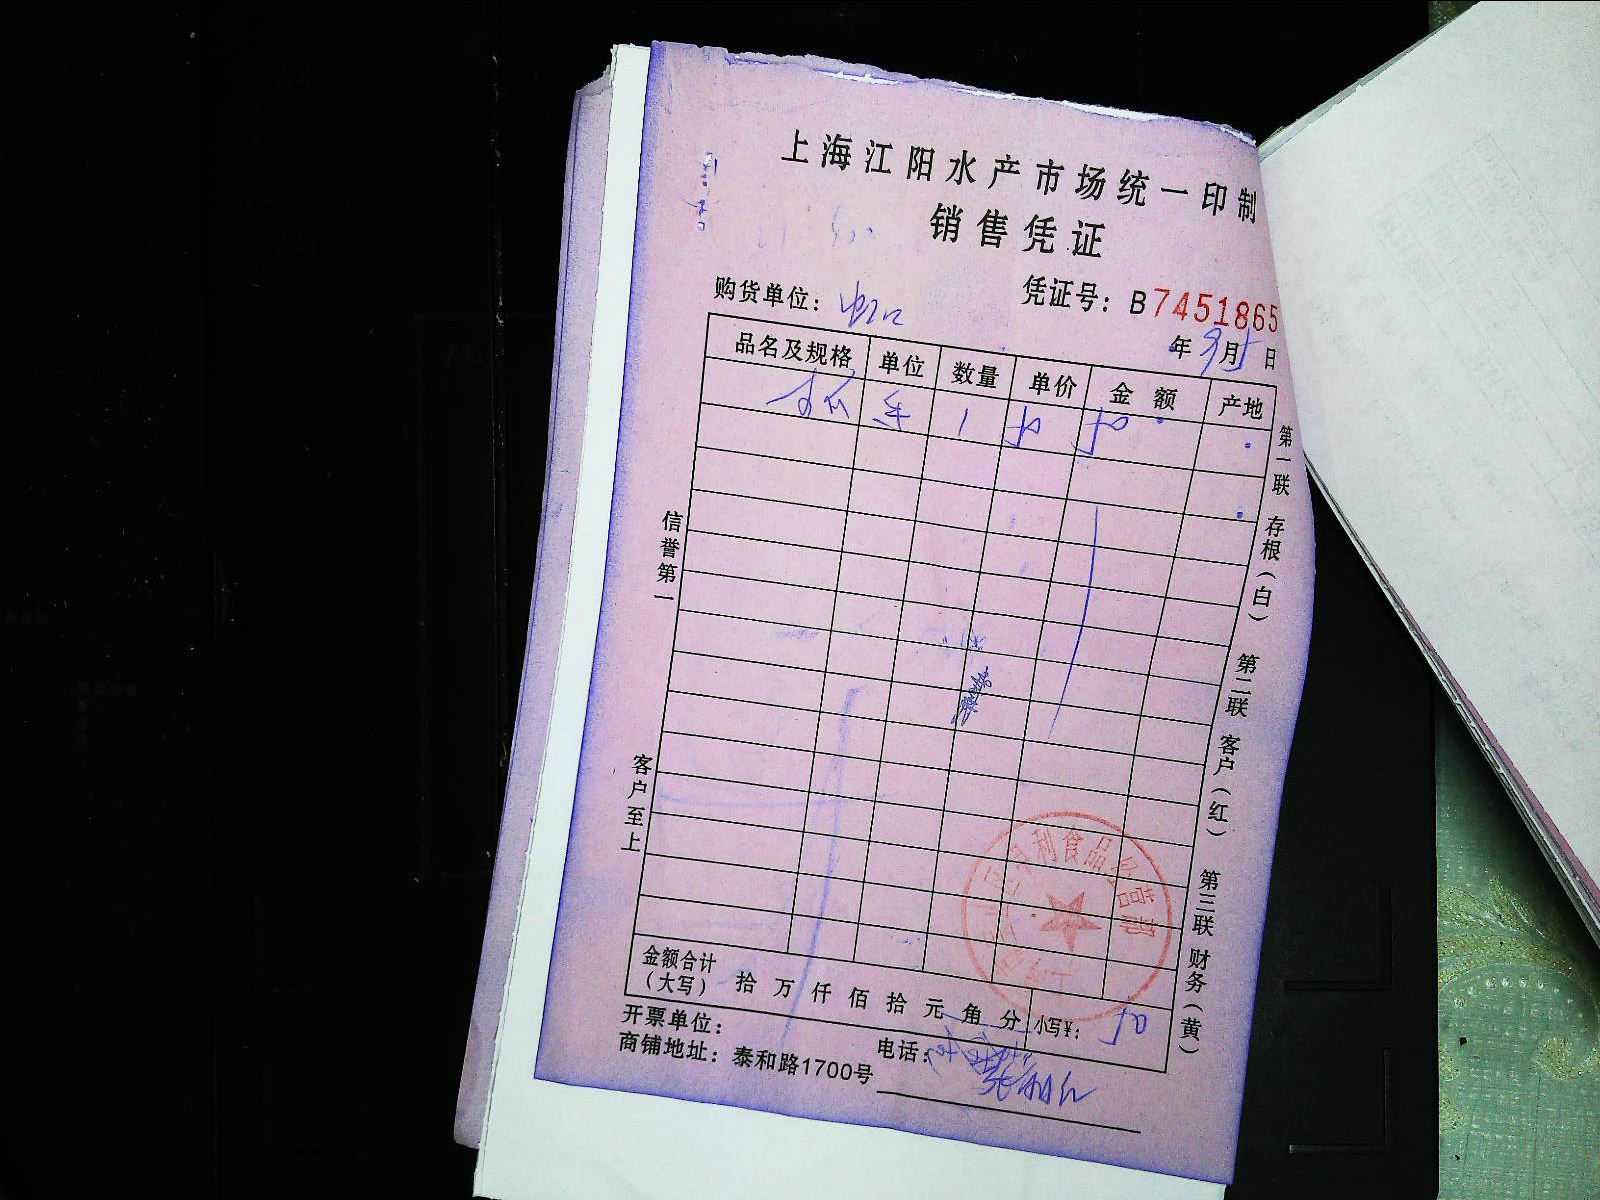 上海江阳水产市场统一印制
销售凭证
购货单位：
凭证号：B7451865
年 9月 日
品名及规格 单位 数量 单价 金额 产地
1
信誉第一
客户至上
第一联 存根（白） 第二联 客户（红） 第三联 财务（黄）
利食品经营部
金额合计（大写） 拾 万 仟 佰 拾 元 角 分 小写¥：
开票单位： 电话：
商铺地址：泰和路1700号